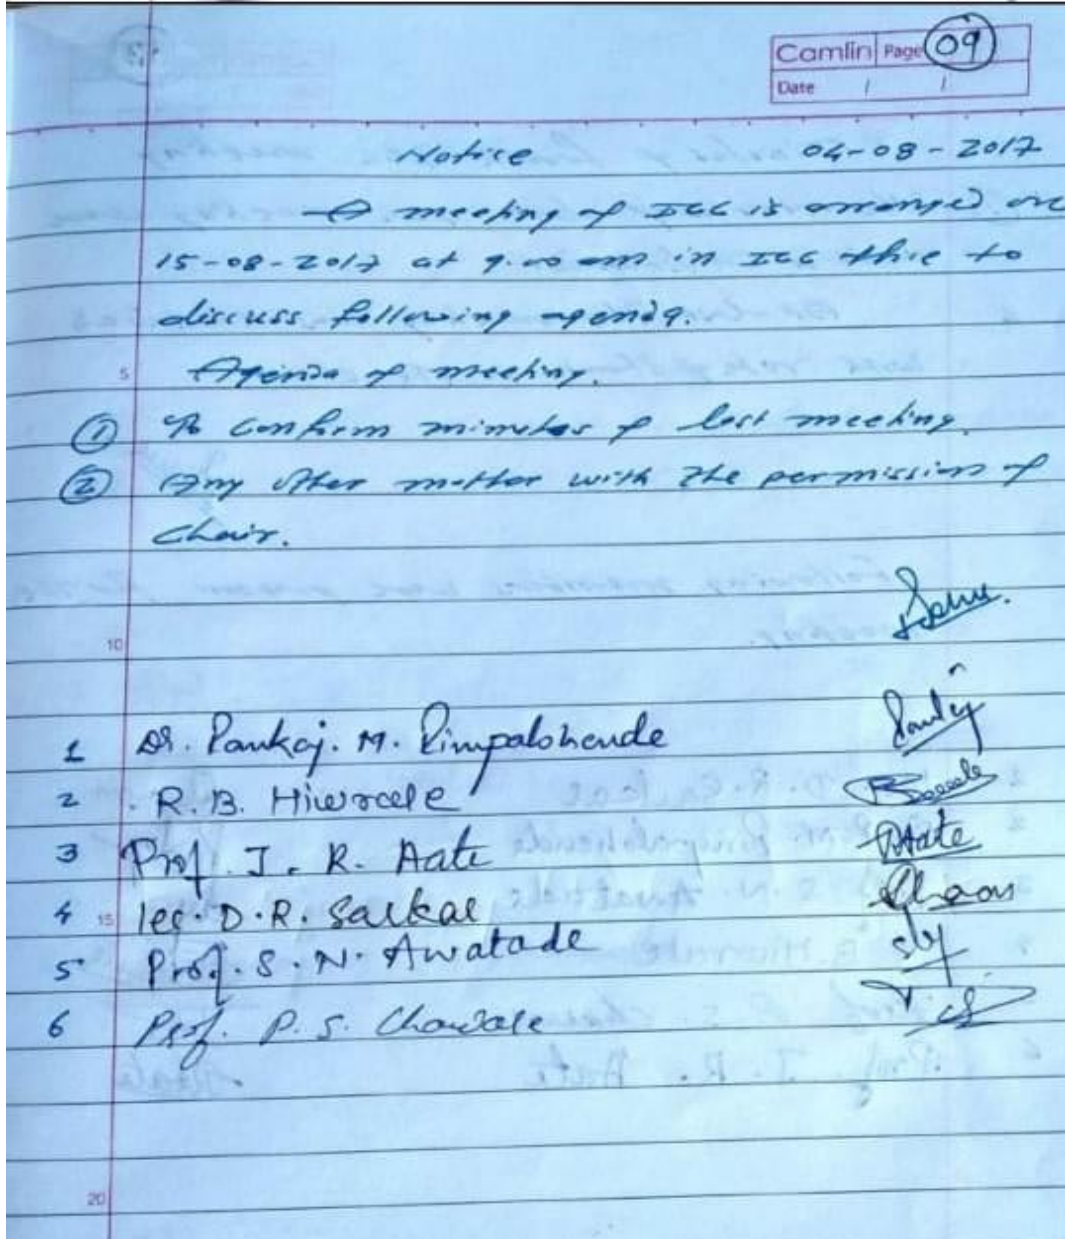 Camlin Page 09
Date / /
Notice 04-08-2017
A meeting of ICC is arranged on
15-08-2017 at 9.00 am in ICC office to
discuss following agenda.
5 Agenda of meeting.
① To confirm minutes of last meeting.
② Any other matter with the permission of
chair.
10
1 Dr. Pankaj. M. Pimpalshende
2 . R.B. Hiwrale
3 Prof. J. R. Aate Aate
4 15 lec. D.R. Sarkar
5 Prof. S. N. Awatade
6 Prof. P. S. Chawale
20